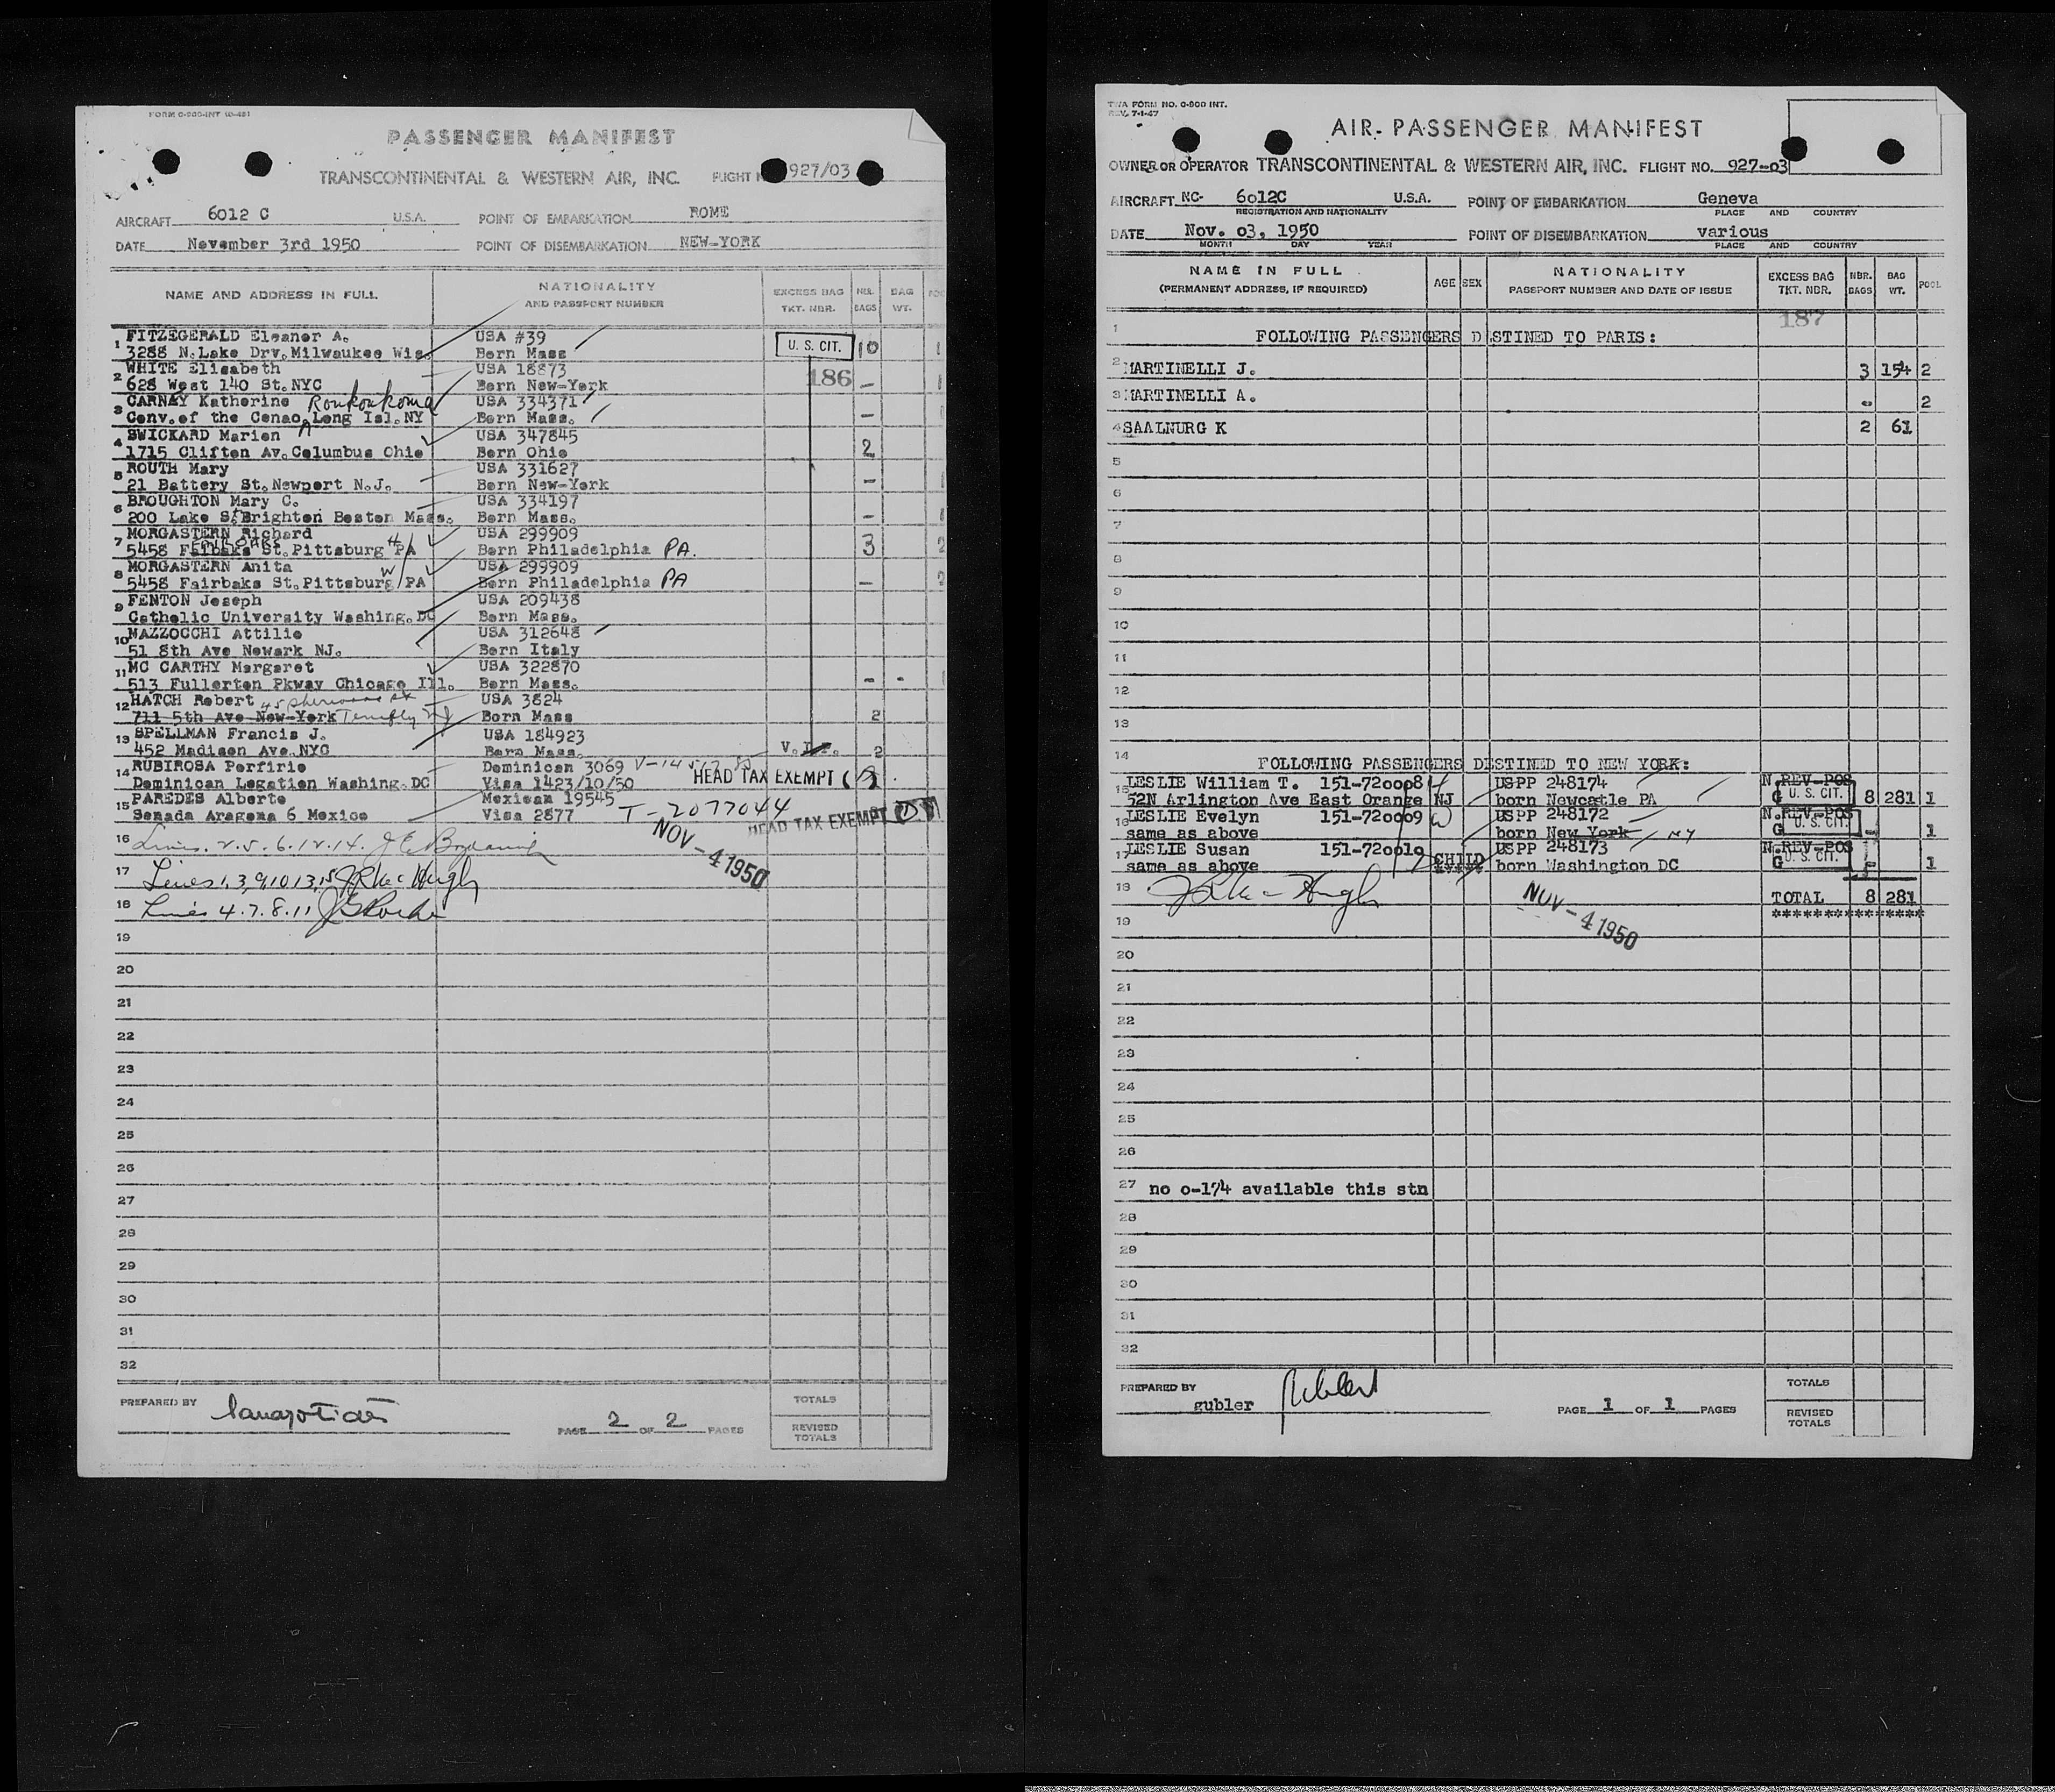 FORM 0-800-INT 10-481
PASSENGER MANIFEST
TRANSCONTINENTAL & WESTERN AIR, INC. FLIGHT 927/03
AIRCRAFT 6012 C U.S.A. POINT OF EMBARKATION ROME
DATE Nevember 3rd 1950 POINT OF DISEMBARKATION NEW-YORK
NAME AND ADDRESS IN FULL NATIONALITY AND PASSPORT NUMBER EXCESS BAG TKT. NBR. NBR. BAGS BAG WT.
1 FITZEGERALD Eleanor A. USA #39
3288 N.Lake Drv.Milwaukee Wis. Born Mass U. S. CIT. 10
2 WHITE Elisabeth USA 18873
628 West 140 St.NYC Born New-York 186 -
3 CARNAY Katherine Ronkonkoma USA 334371
Cenv.of the Cenac Leng Isl.NY Born Mass. -
4 SWICKARD Marien USA 347845
1715 Cliften Av.Celumbus Ohie Born Ohie 2
5 ROUTH Mary USA 331627
21 Battery St.Newpert N.J. Bern New-Yerk -
6 BROUGHTON Mary C. USA 334197
200 Lake St Brighton Besten Mass. Bern Mass. -
7 MORGASTERN Richard USA 299909
5458 Faibaks St.Pittsburg H PA Bern Philadelphia PA. 3
8 MORGASTERN Anita USA 299909
5458 Fairbaks St.Pittsburg W PA Bern Philadelphia PA -
9 FENTON Jeseph USA 209438
Cathelic University Washing.DC Bern Mass.
10 MAZZOCCHI Attilie USA 312648
51 8th Ave Newark NJ. Bern Italy
11 MC CARTHY Margaret USA 322870
513 Fullerten Pkway Chicage Ill. Bern Mass. - -
12 HATCH Rebert 45 USA 3824
711 5th Ave New-York Tenafly NJ Born Mass 2
13 SPELLMAN Francis J. USA 184923
452 Madisen Ave.NYC Bern Mass. V.I.P. 2
14 RUBIROSA Perfirie Deminican 3069
Deminican Legatien Washing.DC Visa 1423/10/50 HEAD TAX EXEMPT
15 PAREDES Alberte Mexican 19545 T-2077044
Senada Aragena 6 Mexice Visa 2877 HEAD TAX EXEMPT
16 Lines. 2.5.6.12.14.
NOV -4 1950
17 Lines 1,3,9,10,13,15
18 Lines 4.7.8.11
19
20
21
22
23
24
25
26
27
28
29
30
31
32
PREPARED BY
PAGE 2 OF 2 PAGES
TOTALS
REVISED TOTALS
TWA FORM NO. 0-800 INT.
REV. 7-1-47
AIR PASSENGER MANIFEST
OWNER OR OPERATOR TRANSCONTINENTAL & WESTERN AIR, INC. FLIGHT NO. 927-03
AIRCRAFT NC- 6o12C U.S.A. POINT OF EMBARKATION Geneva
REGISTRATION AND NATIONALITY PLACE AND COUNTRY
DATE Nov. o3, 1950 POINT OF DISEMBARKATION various
MONTH DAY YEAR PLACE AND COUNTRY
NAME IN FULL (PERMANENT ADDRESS, IF REQUIRED) AGE SEX NATIONALITY PASSPORT NUMBER AND DATE OF ISSUE EXCESS BAG TKT. NBR. NBR. BAGS BAG WT. POOL
187
1 FOLLOWING PASSENGERS DESTINED TO PARIS:
2 MARTINELLI J. 3 154 2
3 MARTINELLI A. - 2
4 SAALNURG K 2 61
5
6
7
8
9
10
11
12
13
14 FOLLOWING PASSENGERS DESTINED TO NEW YORK:
15 LESLIE William T. 151-72ooo8 H USPP 248174 N.REV-POS
52N Arlington Ave East Orange NJ born Newcatle PA G U. S. CIT. 8 281 1
16 LESLIE Evelyn 151-72ooo9 W USPP 248172 N.REV-POS
same as above born New York NY G U. S. CIT. - 1
17 LESLIE Susan 151-72oo1o CHILD USPP 248173 N.REV-POS
same as above born Washington DC G U. S. CIT. - 1
18 TOTAL 8 281
NOV -4 1950
19 ****************
20
21
22
23
24
25
26
27 no o-174 available this stn
28
29
30
31
32
PREPARED BY
gubler
PAGE 1 OF 1 PAGES
TOTALS
REVISED TOTALS